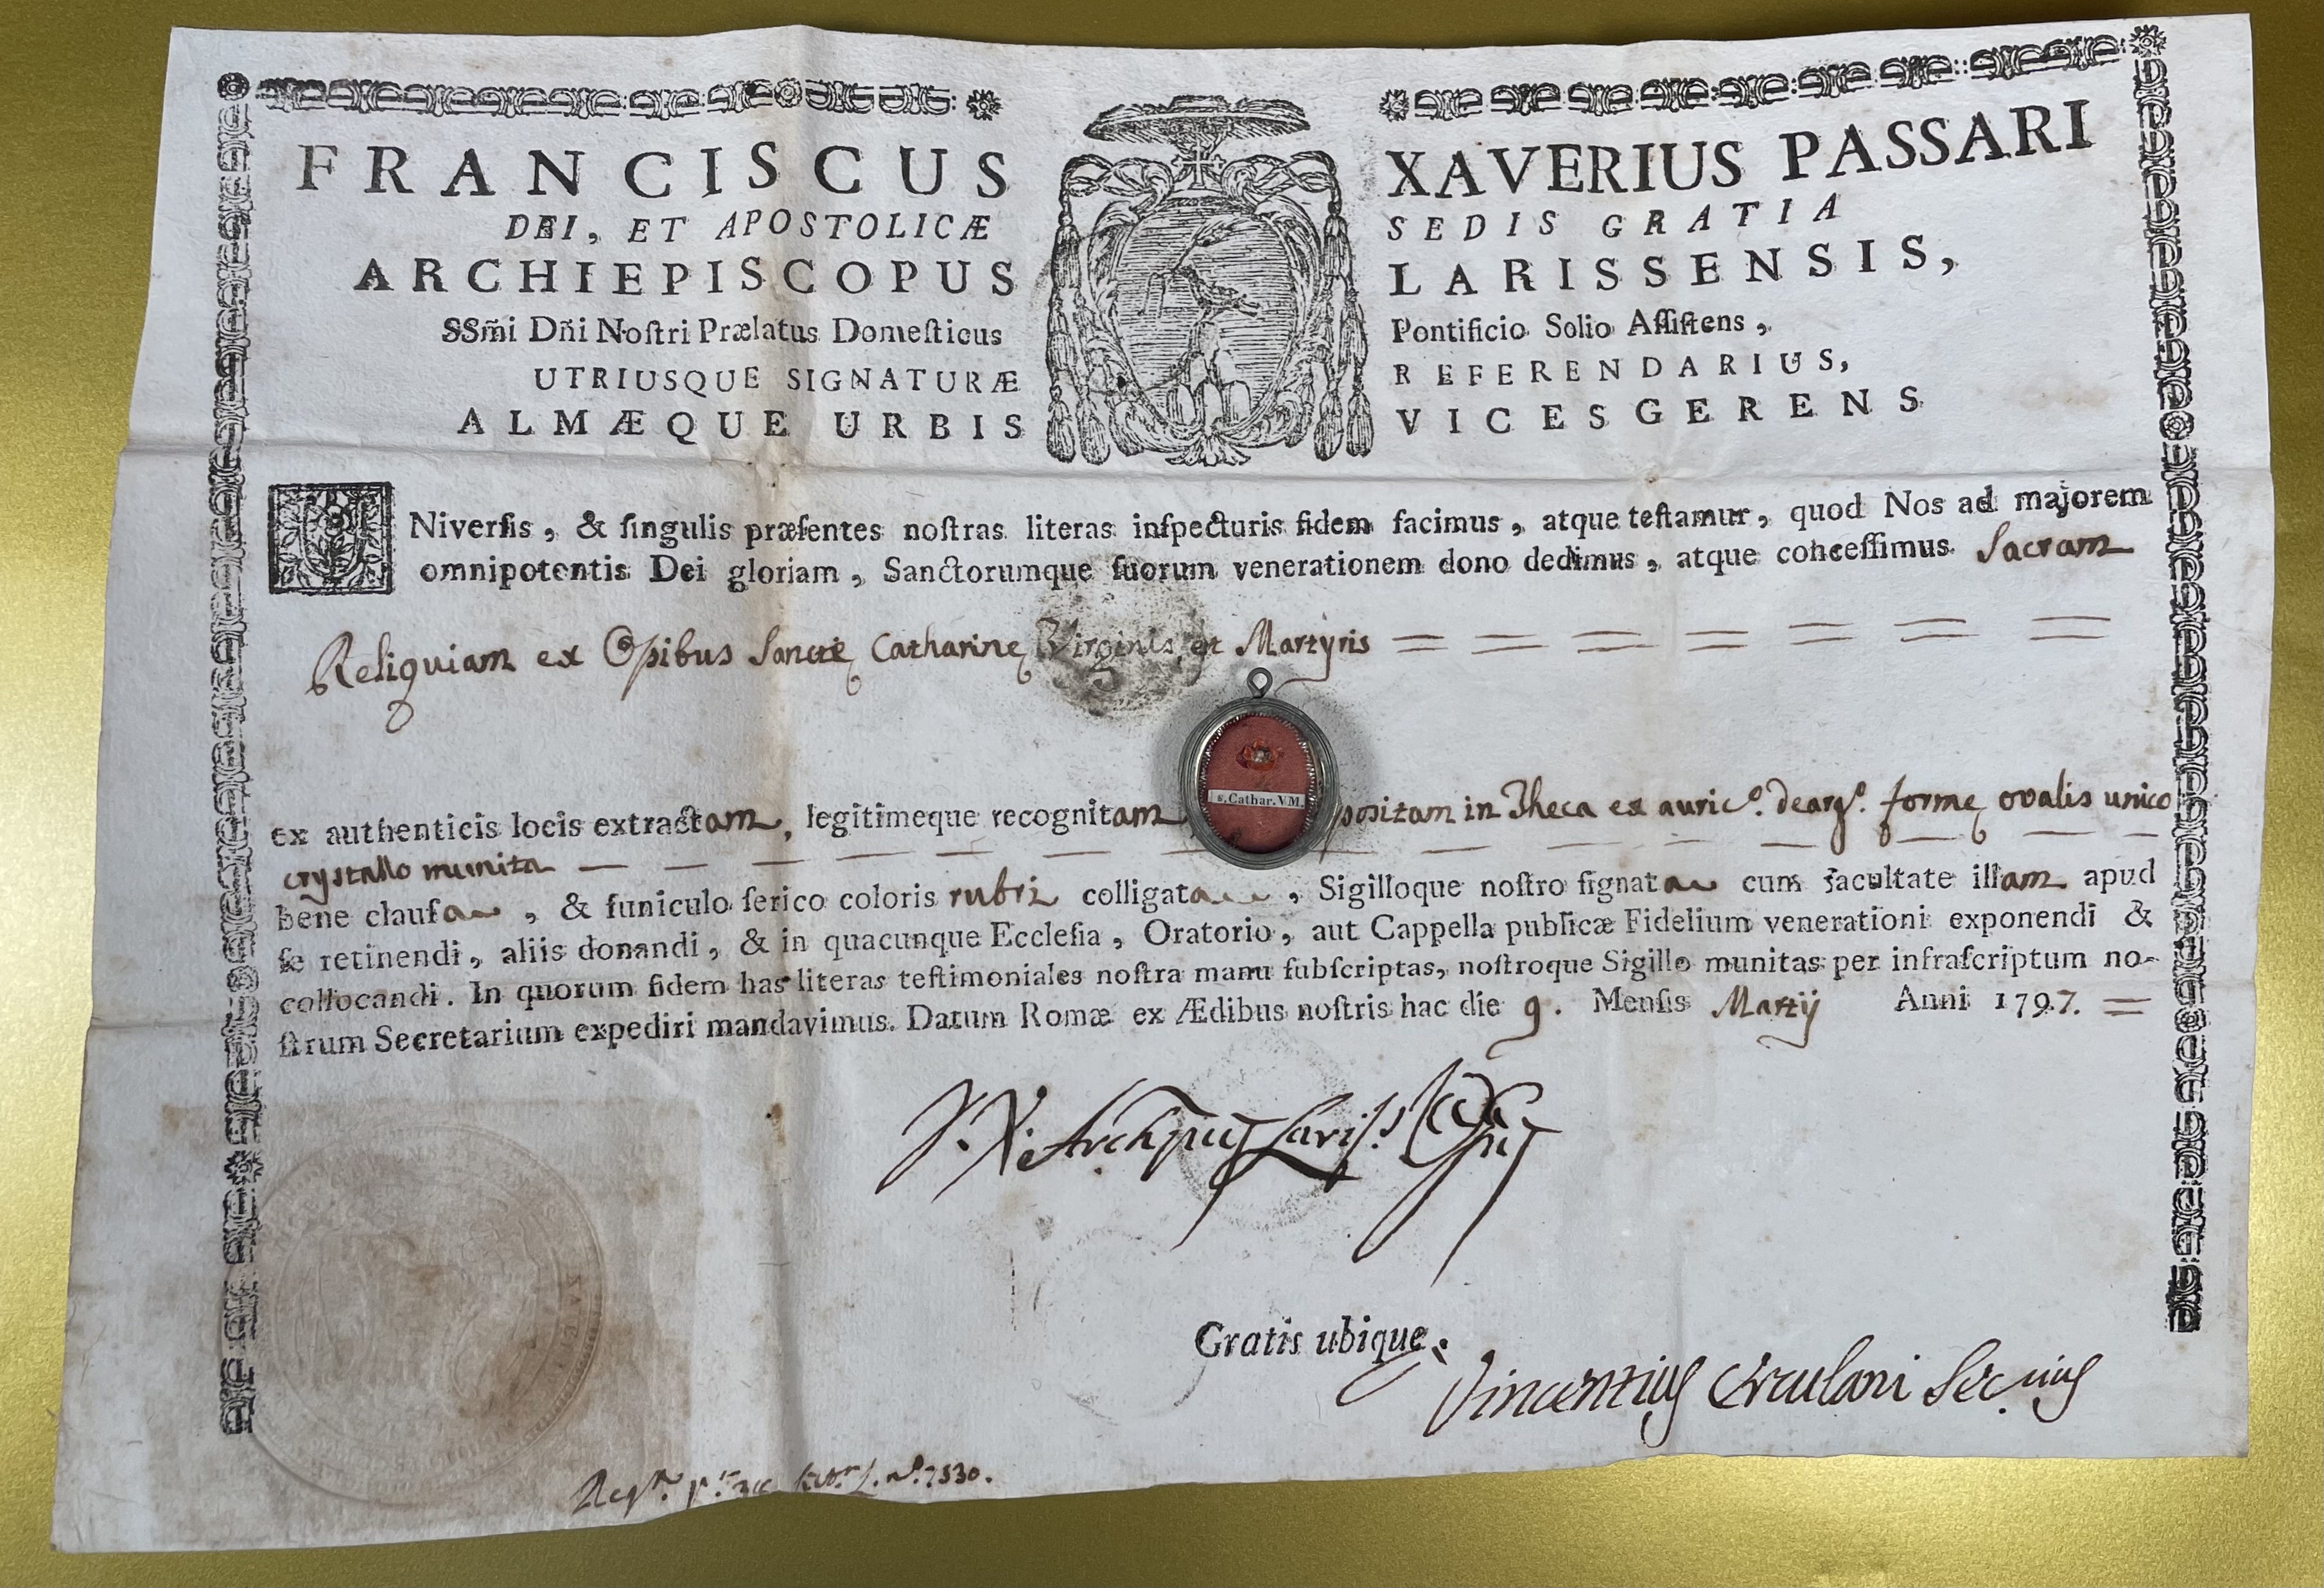 FRANCISCUS XAVERIUS PASSARI
DEI, ET APOSTOLICÆ SEDIS GRATIA
ARCHIEPISCOPUS LARISSENSIS,
SSm̃i Dñi Noſtri Prælatus Domeſticus Pontificio Solio Aſſiſtens,
UTRIUSQUE SIGNATURÆ REFERENDARIUS,
ALMÆQUE URBIS VICESGERENS
UNiverſis, & ſingulis præſentes noſtras literas inſpecturis fidem facimus, atque teſtamur, quod Nos ad majorem
omnipotentis Dei gloriam, Sanctorumque ſuorum venerationem dono dedimus, atque conceſſimus Sacram
Reliquiam ex Oſsibus Sanctę Catharinę Virginis, et Martyris
s. Cathar. V.M.
ex authenticis locis extractam, legitimeque recognitam positam in Theca ex auric.º de arg.º formę ovalis unico
crystallo munita
bene clauſa, & funiculo ſerico coloris rubri colligata, Sigilloque noſtro ſignata cum facultate illam apud
ſe retinendi, aliis donandi, & in quacunque Eccleſia, Oratorio, aut Cappella publicæ Fidelium venerationi exponendi &
collocandi. In quorum fidem has literas teſtimoniales noſtra manu ſubſcriptas, noſtroque Sigillo munitas per infraſcriptum no-
ſtrum Secretarium expediri mandavimus. Datum Romæ ex Ædibus noſtris hac die 9. Menſis Martÿ Anni 1797.
F. X. Archpus Lariſ.s
Gratis ubique.
Vincentius Erculani Sec.rius
nº. 7530.